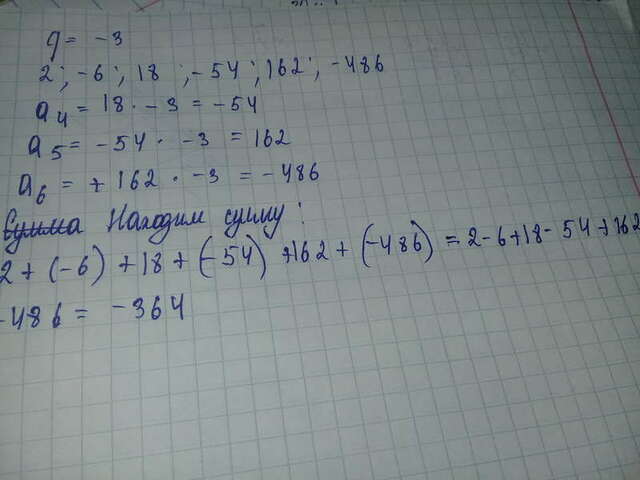 q = -3
2; -6; 18; -54; 162; -486
a4 = 18 · -3 = -54
a5 = -54 · -3 = 162
a6 = +162 · -3 = -486
Сумма Находим сумму:
2 + (-6) + 18 + (-54) + 162 + (-486) = 2 - 6 + 18 - 54 + 162
-486 = -364